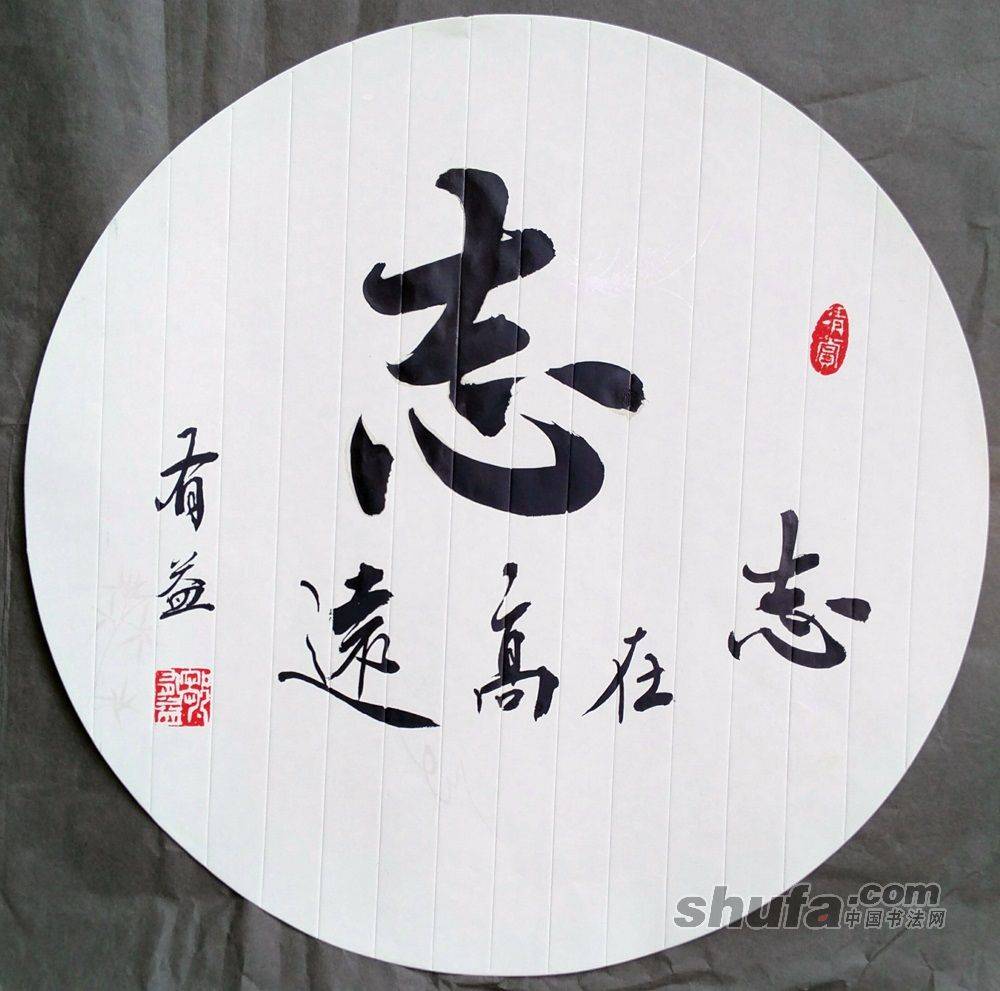 志
志在高遠
有益
清賞
shufa.com
中国书法网